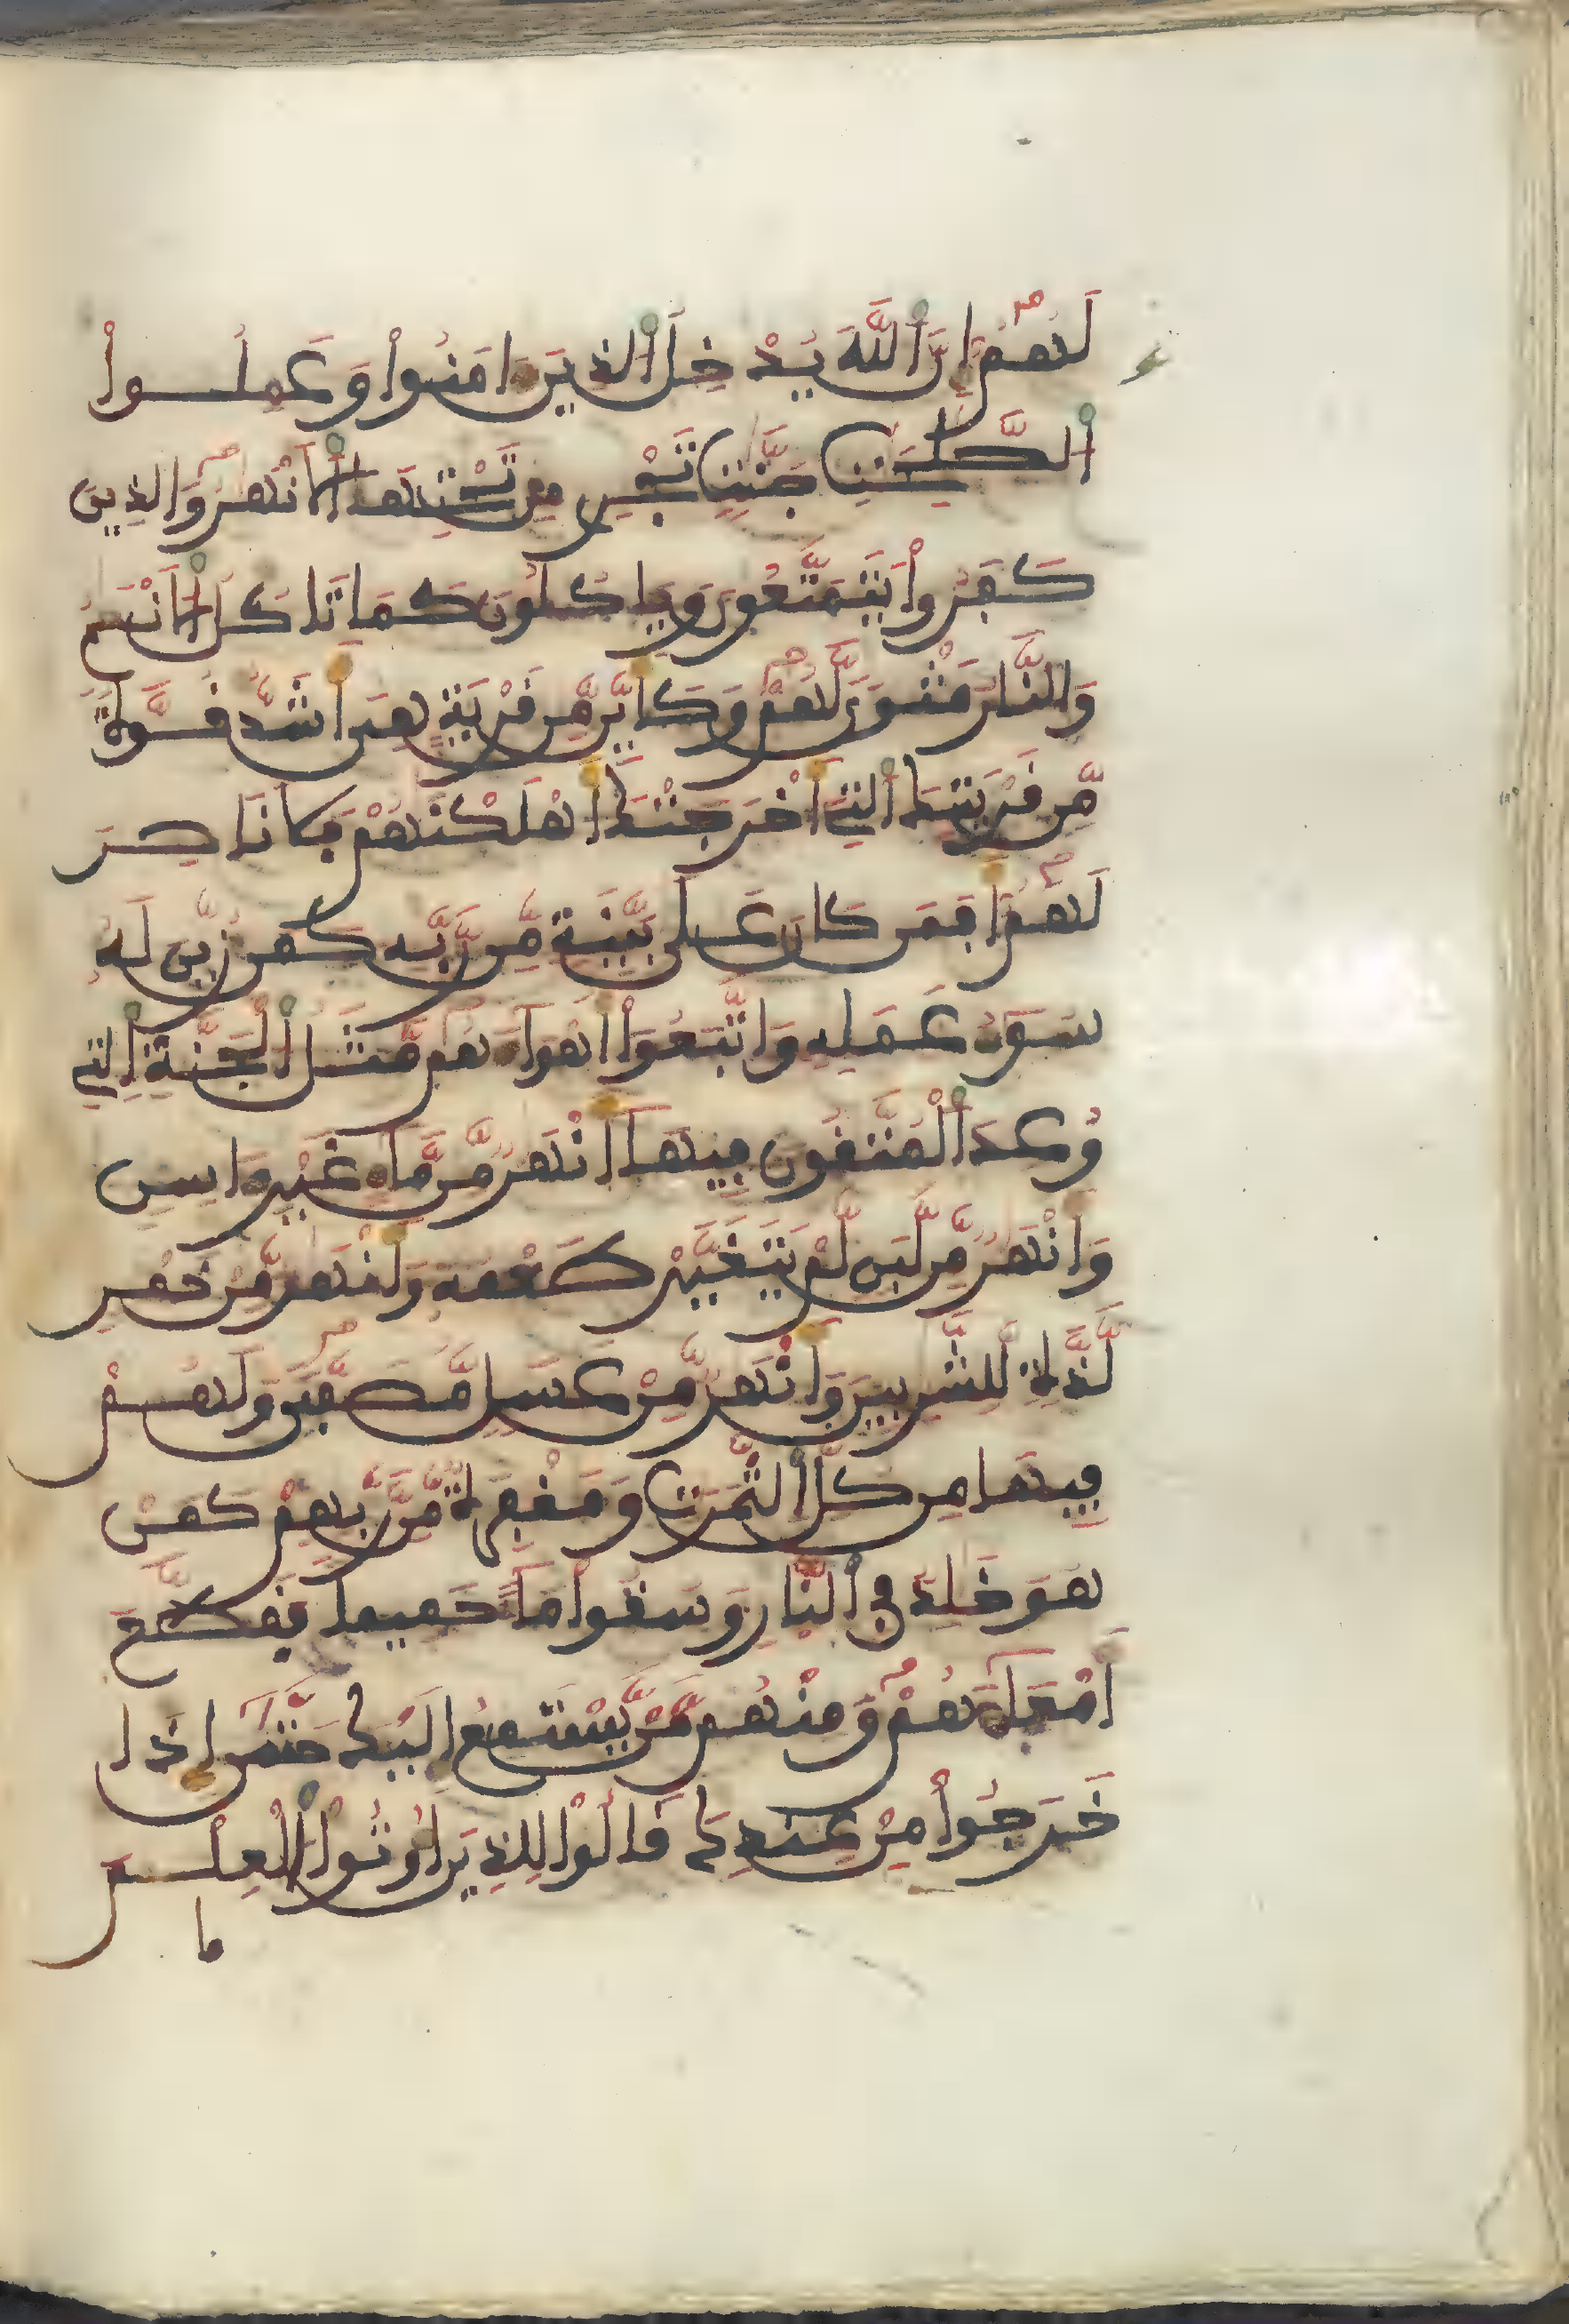 لَهُمُۥ إِنَّ اَ۬للَّهَ يُدْخِلُ اُ۬لذِينَ ءَامَنُواْ وَعَمِلُواْ
اُ۬لصَّٰلِحَٰتِ جَنَّٰتٍ تَجْرِے مِن تَحْتِهَا اَ۬لَانْهَٰرُ وَالذِينَ
كَفَرُواْ يَتَمَتَّعُونَ وَيَاكُلُونَ كَمَا تَاكُلُ اُ۬لَانْعَٰمُ
وَالنَّارُ مَثْوىً لَّهُمْ وَكَأَيِّن مِّن قَرْيَةٍ هِيَ أَشَدُّ قُوَّةً
مِّن قَرْيَتِكَ اَ۬لتِےٓ أَخْرَجَتْكَ أَهْلَكْنَٰهُمْ فَلَا نَاصِرَ
لَهُمُۥٓ أَفَمَن كَانَ عَلَىٰ بَيِّنَةٍ مِّن رَّبِّهِۦ كَمَن زُيِّنَ لَهُۥ
سُوٓءُ عَمَلِهِۦ وَاتَّبَعُوٓاْ أَهْوَآءَهُم مَّثَلُ اُ۬لْجَنَّةِ اِ۬لتِے
وُعِدَ اَ۬لْمُتَّقُونَ فِيهَآ أَنْهَٰرٌ مِّن مَّآءٍ غَيْرِ ءَاسِنٍ
وَأَنْهَٰرٌ مِّن لَّبَنٍ لَّمْ يَتَغَيَّرْ طَعْمُهُۥ وَأَنْهَٰرٌ مِّنْ خَمْرٍ
لَّذَّةٍ لِّلشَّٰرِبِينَ وَأَنْهَٰرٌ مِّنْ عَسَلٍ مُّصَفّىً وَلَهُمْ
فِيهَا مِن كُلِّ اِ۬لثَّمَرَٰتِ وَمَغْفِرَةٌ مِّن رَّبِّهِمْ كَمَنْ
هُوَ خَٰلِدٌ فِے اِ۬لنَّارِ وَسُقُواْ مَآءً حَمِيماً فَقَطَّعَ
أَمْعَآءَهُمْ وَمِنْهُم مَّنْ يَّسْتَمِعُ إِلَيْكَ حَتَّىٰٓ إِذَا
خَرَجُواْ مِنْ عِندِكَ قَالُواْ لِلذِينَ أُوتُواْ اُ۬لْعِلْمَ
ما